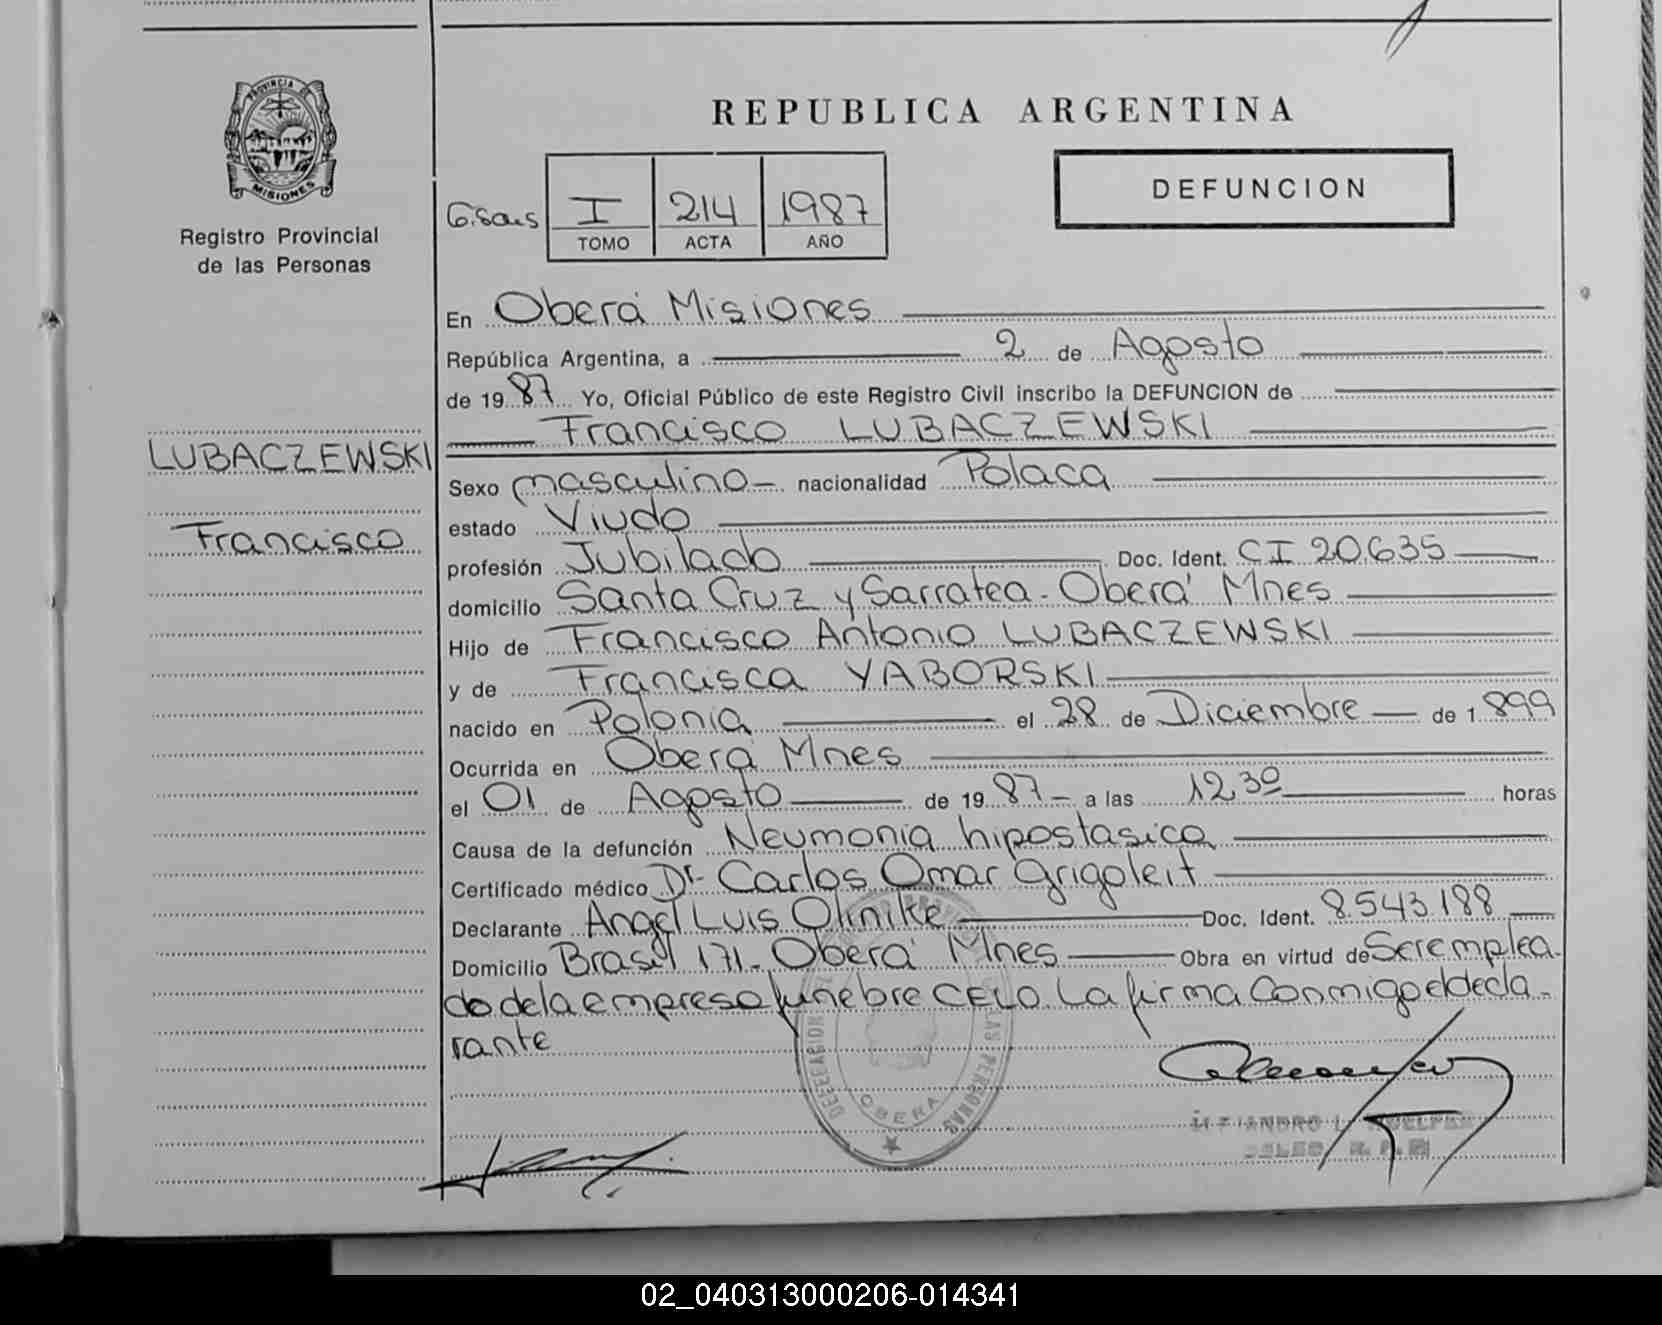 PROVINCIA DE
MISIONES
Registro Provincial
de las Personas
LUBACZEWSKI
Francisco
REPUBLICA ARGENTINA
DEFUNCION
I 214 1987
TOMO ACTA AÑO
En Oberá Misiones
República Argentina, a 2 de Agosto
de 1987 Yo, Oficial Público de este Registro Civil inscribo la DEFUNCION de
Francisco LUBACZEWSKI
Sexo masculino nacionalidad Polaca
estado Viudo
profesión Jubilado Doc. Ident. CI 20.635
domicilio Santa Cruz y Sarratea - Oberá Mnes
Hijo de Francisco Antonio LUBACZEWSKI
y de Francisca YABORSKI
nacido en Polonia el 28 de Diciembre de 1.899
Ocurrida en Oberá Mnes
el 01 de Agosto de 1987 a las 12 30 horas
Causa de la defunción Neumonia hipostasica
Certificado médico Dr. Carlos Omar Grigoleit
Declarante Angel Luis Olinike Doc. Ident. 8.543.188
Domicilio Brasil 171 - Oberá Mnes Obra en virtud de Ser emplea-
do de la empresa funebre CELO. La firma Conmigo el decla-
rante
DELEGACION
LAS PERSONAS
OBERA
02_040313000206-014341